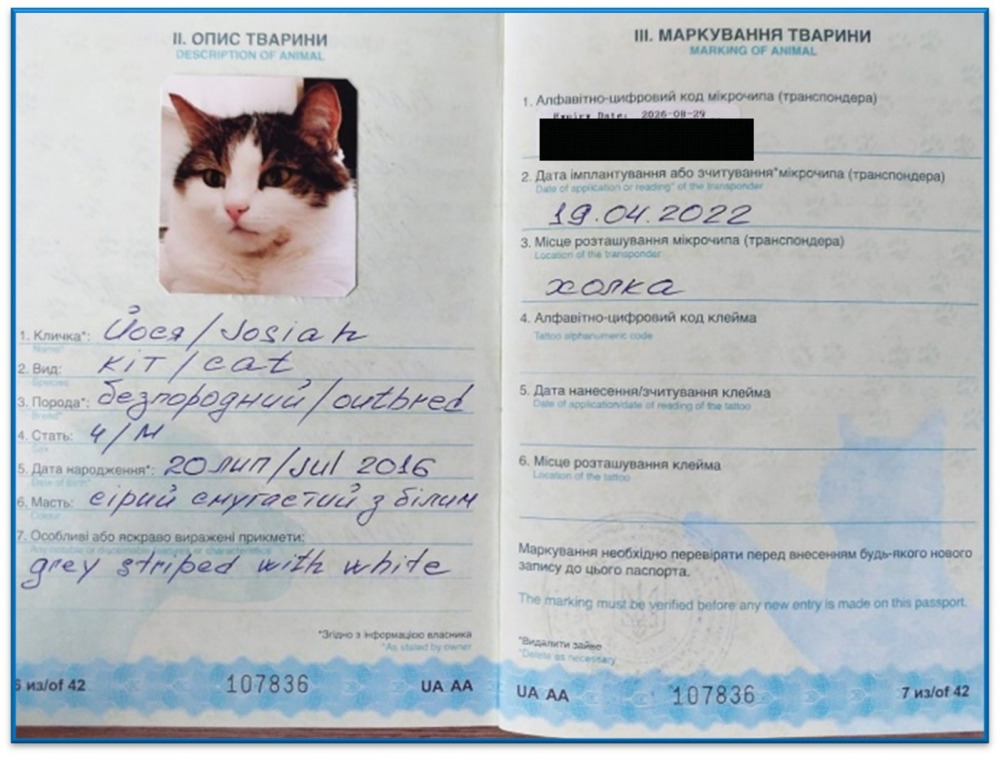 II. ОПИС ТВАРИНИ
DESCRIPTION OF ANIMAL
1. Кличка*: Йося/Josiah
Name*
2. Вид: кіт/cat
Species
3. Порода*: безпородний/outbred
Breed*
4. Стать: ч/м
Sex
5. Дата народження*: 20 лип/Jul 2016
Date of birth*
6. Масть: сірий смугастий з білим
Colour
7. Особливі або яскраво виражені прикмети:
Any notable or discernable features or characteristics
grey striped with white
*Згідно з інформацією власника
*As stated by owner
6 из/of 42 107836 UA AA
III. МАРКУВАННЯ ТВАРИНИ
MARKING OF ANIMAL
1. Алфавітно-цифровий код мікрочипа (транспондера)
Expiry Date: 2026-08-29
2. Дата імплантування або зчитування*мікрочипа (транспондера)
Date of application or reading* of the transponder
19.04.2022
3. Місце розташування мікрочипа (транспондера)
Location of the transponder
холка
4. Алфавітно-цифровий код клейма
Tattoo alphanumeric code
5. Дата нанесення/зчитування клейма
Date of application/date of reading of the tattoo
6. Місце розташування клейма
Location of the tattoo
Маркування необхідно перевіряти перед внесенням будь-якого нового
запису до цього паспорта.
The marking must be verified before any new entry is made on this passport.
*Видалити зайве
*Delete as necessary
UA AA 107836 7 из/of 42